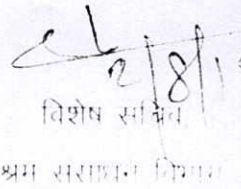 2/8/1
विशेष सचिव
श्रम संसाधन विभाग